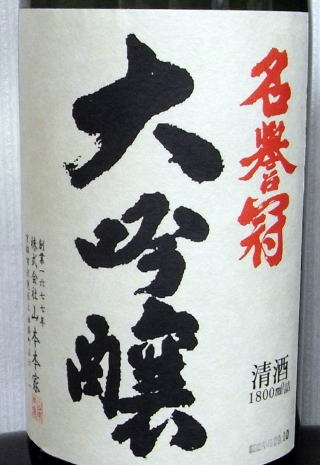 名譽冠
大吟醸
清酒
1800ml詰
創業一六七七年
株式会社山本本家